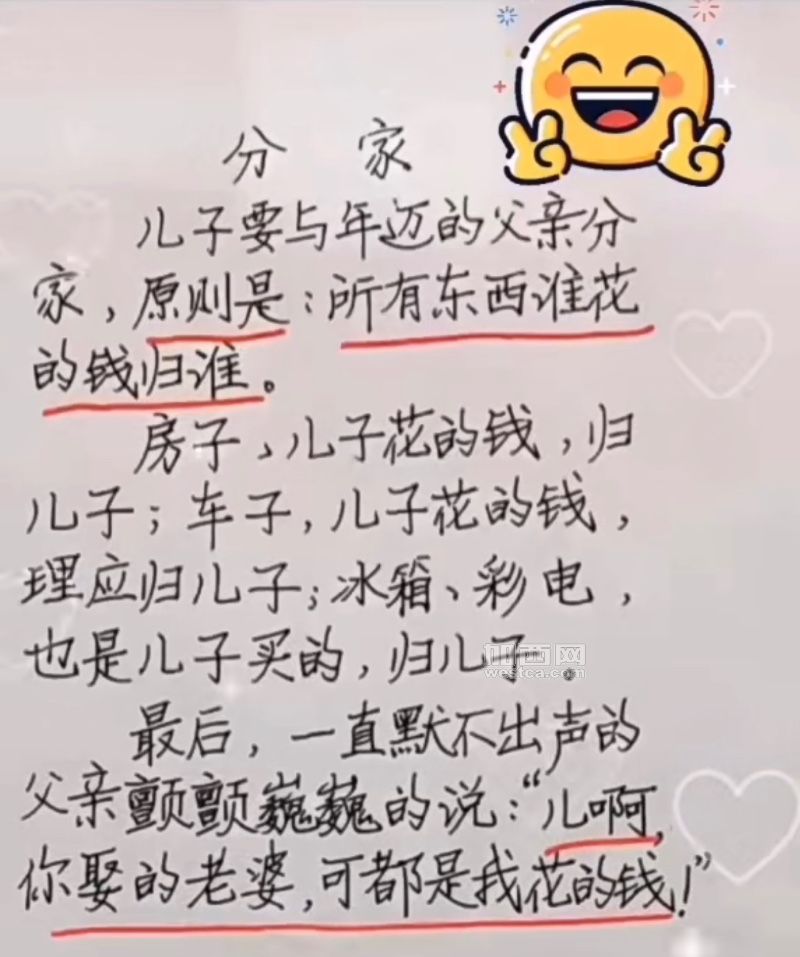 分 家
儿子要与年迈的父亲分
家，原则是：所有东西谁花
的钱归谁。
房子、儿子花的钱，归
儿子；车子，儿子花的钱，
理应归儿子；冰箱、彩电，
也是儿子买的，归儿子。
加西网
westca.com
最后，一直默不出声的
父亲颤颤巍巍的说：“儿啊，
你娶的老婆，可都是我花的钱！”